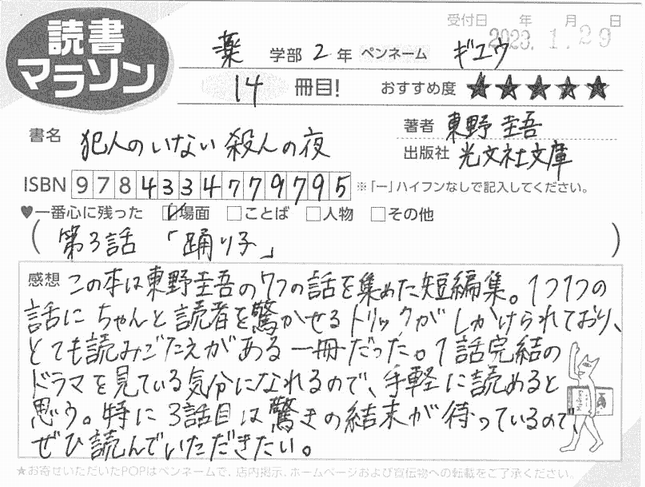 読書
マラソン
受付日 年 月 日
2023. 1. 29
薬 学部 2 年 ペンネーム ギユウ
14 冊目! おすすめ度 ★★★★★
書名 犯人のいない殺人の夜
著者 東野 圭吾
出版社 光文社文庫
ISBN 9784334779795 ※「ー」ハイフンなしで記入してください。
♥一番心に残った ☑場面 □ことば □人物 □その他
( 第3話 「踊り子」 )
感想 この本は東野圭吾の7つの話を集めた短編集。1つ1つの
話にちゃんと読者を驚かせるトリックがしかけられており、
とても読みごたえがある一冊だった。1話完結の
ドラマを見ている気分になれるので、手軽に読めると
思う。特に3話目は驚きの結末が待っているので
ぜひ読んでいただきたい。
★お寄せいただいたPOPはペンネームで、店内掲示、ホームページおよび宣伝物への転載をご了承ください。